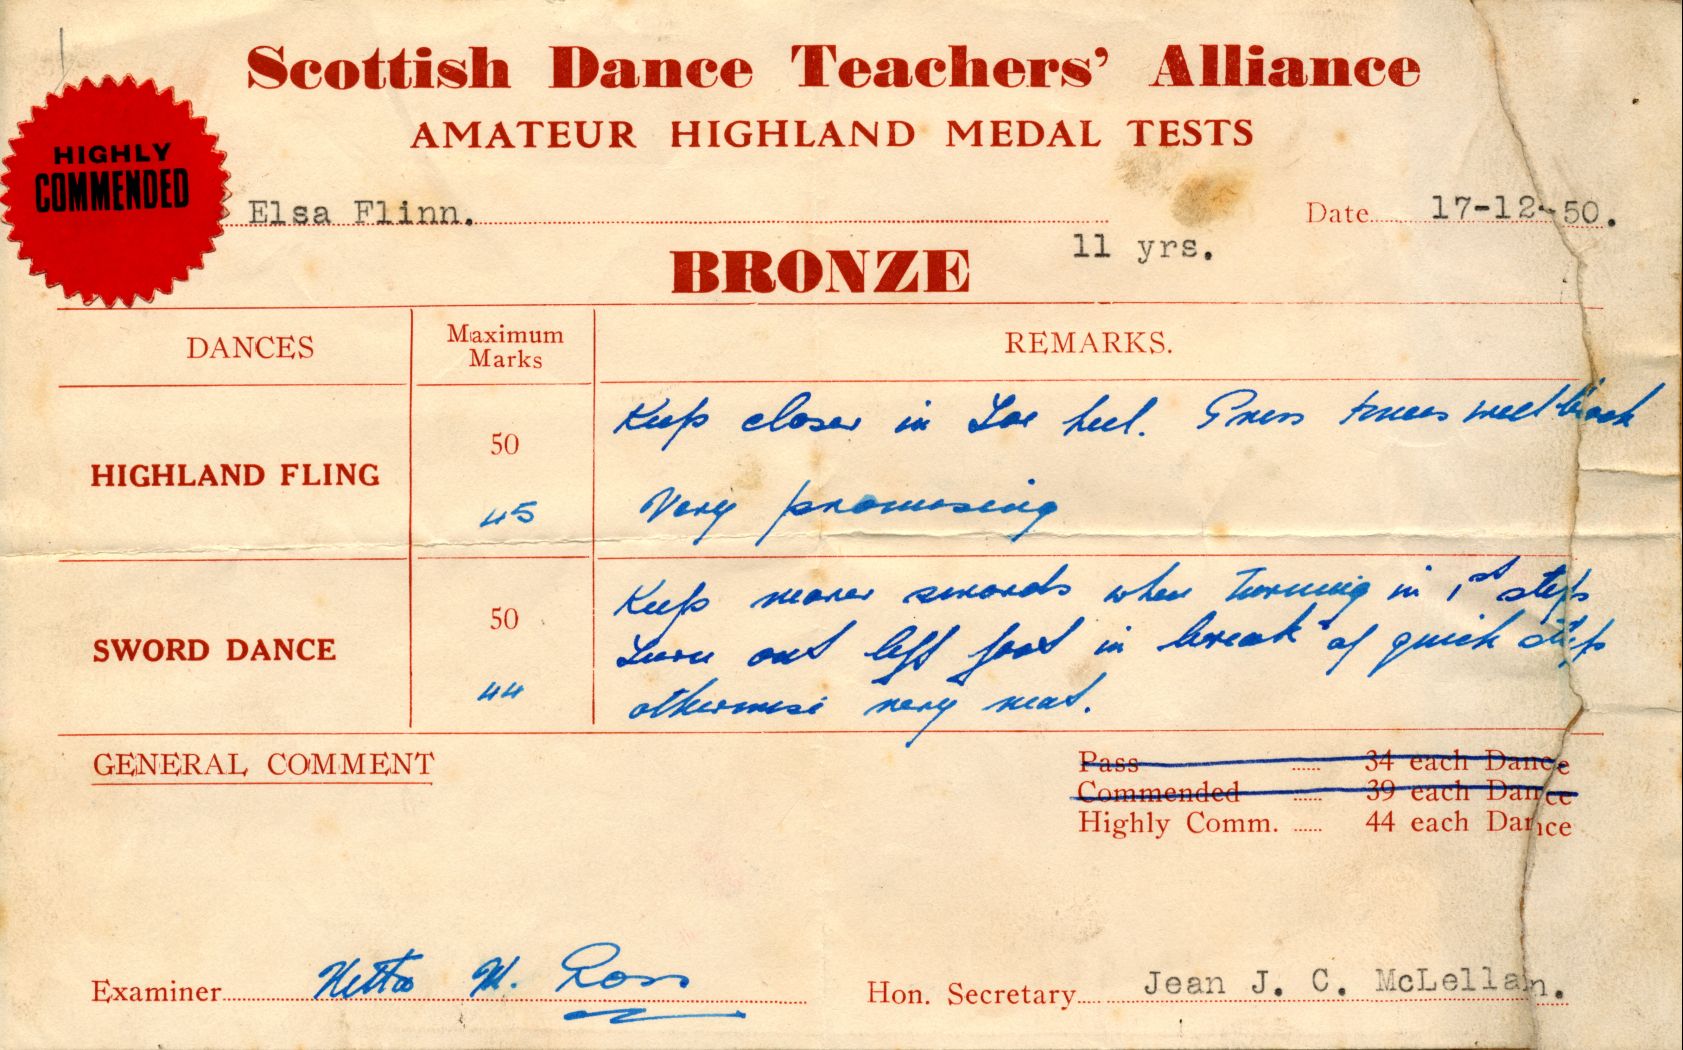 Scottish Dance Teachers' Alliance
AMATEUR HIGHLAND MEDAL TESTS
HIGHLY
COMMENDED
Elsa Flinn.
Date 17-12-50.
11 yrs.
BRONZE
DANCES
Maximum
Marks
REMARKS.
HIGHLAND FLING
50
45
Keep closer in Toe heel. Press knees well back
Very promising
SWORD DANCE
50
44
Keep nearer swords when turning in 1st steps
Turn out left foot in "break" of quick step
otherwise very neat.
GENERAL COMMENT
Pass ...... 34 each Dance
Commended ...... 39 each Dance
Highly Comm. ...... 44 each Dance
Examiner Netta M. Ross
Hon. Secretary Jean J. C. McLellan.